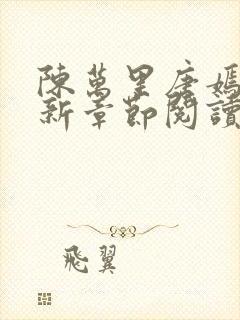 陳萬里唐嫣
新章節閱讀
飛翼